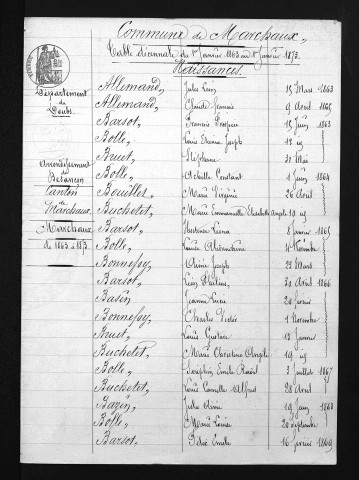 Commune de Marchaux.
Table décennale du 1er Janvier 1863 au 1er Janvier 1873.
Naissances.
Département
du
Doubs.
Arrondissement
de
Besançon
Canton
de
Marchaux.
Marchaux
de 1863 à 1873.
Allemand, Jules 15 Mars 1863
Allemand, Claude 9 Avril 1865
Barsot, François 15 Juin 1863
Bolle, Louis Etienne Joseph 12
Bruet, Stéphanie 30 Mai
Bolle, Achille Constant 1 Juin 1864
Bouillet, Marie Virginie 26 Août
Buchetet, Marie Emmanuelle Elisabeth Angèle 10
Barsot, 8 Janvier 1865
Bolle, Louise Alexandrine 4 Novembre
Bonnefoy, Aimé Joseph 22 Mars
Barsot, Léon 30 Avril 1866
Bazin, Jeanne Lucie 20 Janvier
Bonnefoy, Charles Victor 1 Novembre
Bruet, Louis Gustave 12 Janvier
Buchetet, Marie Christine Angèle 19
Bolle, Joséphin Emile Raoul 3 Juillet 1867
Buchetet, Louis Camille Alfred 28 Avril
Bazin, Jules Aimé 19 Juin 1868
Bolle, Marie Louise 20 Septembre
Barsot, Emile 16 Février 1869